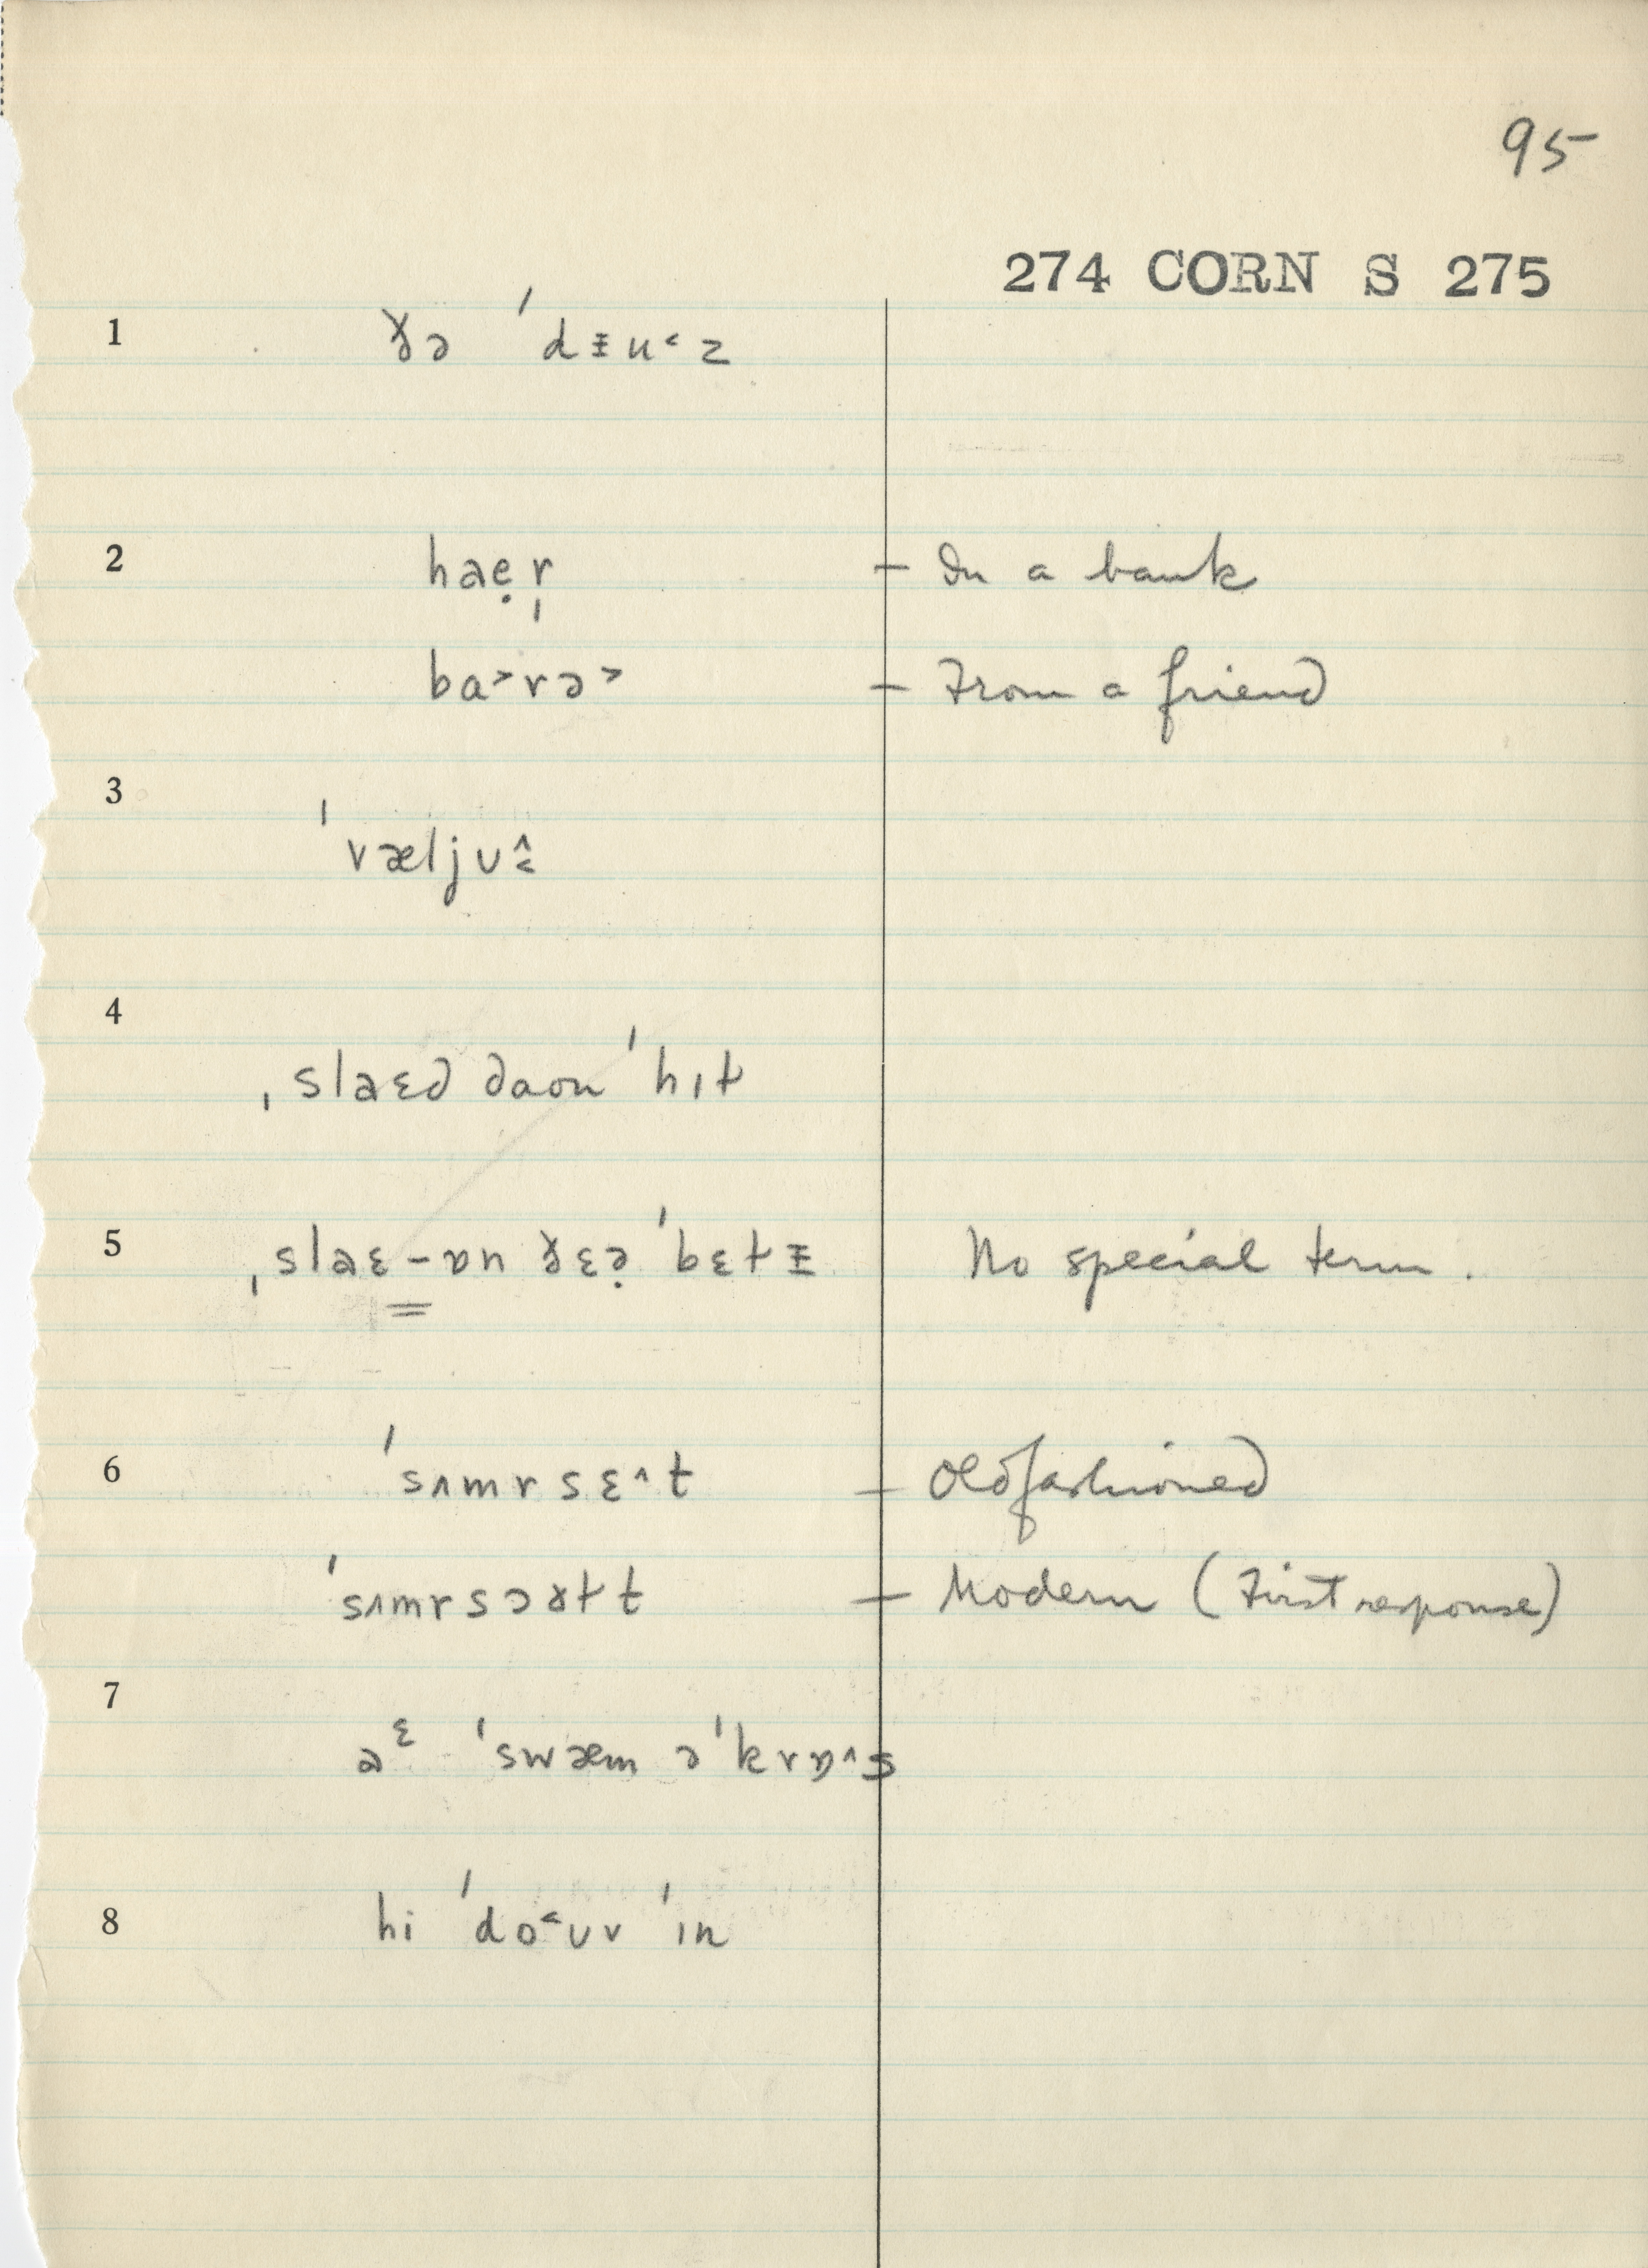 95
274 CORN S 275
1 ðə ˈdᵻu˂z
2 haẹr̩ – In a bank
ba˃rə˃ – From a friend
3 ˈvæljʊ˄˂
4 ˌslaɛd daon ˈhɪt
5 ˌslaɛ-ɒn ðɛə̣ ˈbɛtᵻ No special term.
6 ˈsʌmrsɛ˄t – Oldfashioned
ˈsʌmrsɔɤɫt – Modern (First response)
7 aᵋ ˈswæm əˈkrɒ˄s
8 hi ˈdo˂ʊv ˈɪn